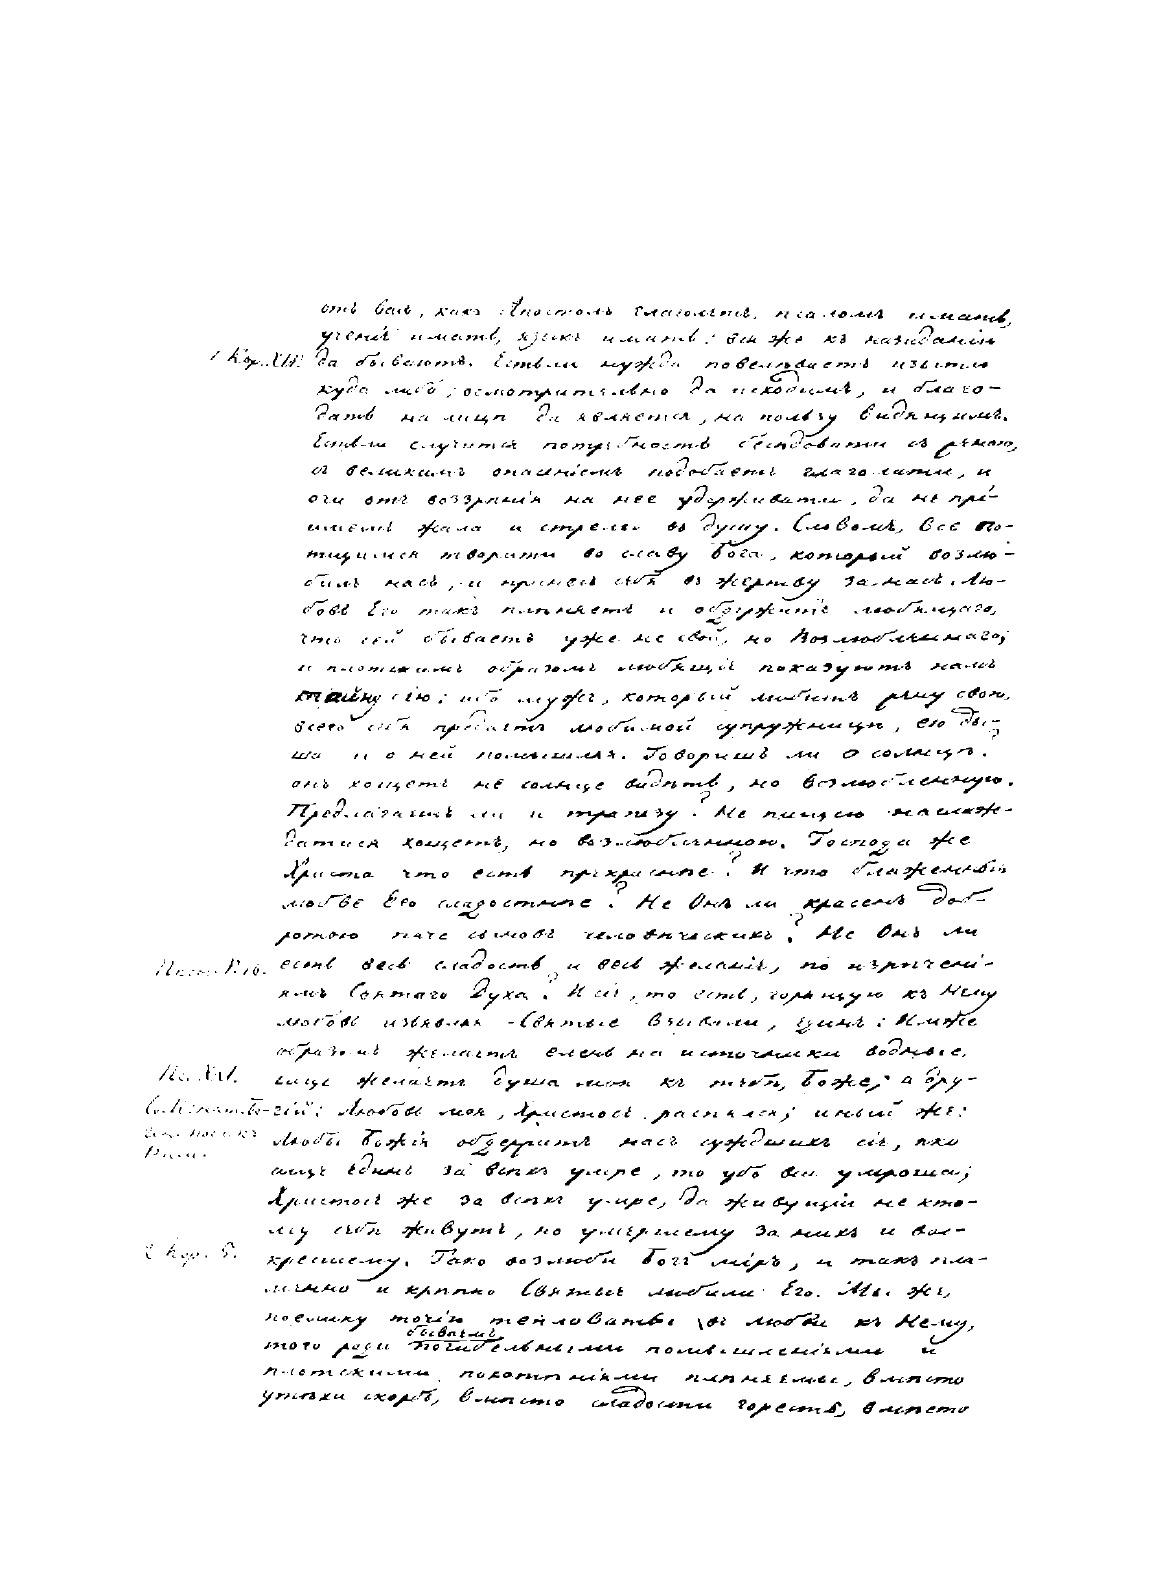 отъ васъ, какъ Апостолъ глаголетъ, псаломъ имать,
ученіе имать, языкъ имать: вся же къ назиданію
1 Кор. XIV. да бываютъ. Естьли нужда повелѣваетъ изыти
куда либо, осмотрительно да исходимъ, и благо-
дать на лицѣ да является, на пользу видящимъ.
Естьли случится потребность бесѣдовати съ женою,
съ великимъ опасеніемъ подобаетъ глаголати, и
очи отъ воззрѣнія на нее удерживати, да не прі-
имемъ жала и стрелы въ душу. Словомъ, все по-
тщимся творити во славу Бога, который возлю-
билъ насъ, и принесъ себя въ жертву за насъ. Лю-
бовь Его такъ плѣняетъ и обдержитъ любящаго,
что сей бываетъ уже не свой, но Возлюбленнаго;
и плотскимъ образомъ любящіе показуютъ намъ
тайну сію: ибо мужъ, который любитъ жену свою,
всего себя предаетъ любимой супружницѣ, ею ды-
ша и о ней помышляя. Говоришь ли о солнцѣ:
онъ хощетъ не солнце видѣть, но возлюбленную.
Предлагаешь ли и трапезу? Не пищею наслаж-
датися хощетъ, но возлюбленною. Господа же
Христа что есть прекраснѣе? И что блаженныя
любве Его сладостнѣе? Не Онъ ли красенъ доб-
ротою паче сыновъ человѣческихъ? Не Онъ ли
есть весь сладость и весь желаніе, по изрѣчені-
ямъ Святаго Духа? И сіе, то есть, горящую къ Нему
любовь изъявляя Святые взывали, единъ: Имже
образомъ желаетъ елень на источники водные,
Пс. XLI. сице желаетъ душа моя къ тебѣ, Боже; а дру-
гій: Любовь моя, Христосъ распялся; иный же:
Любы Божія обдержитъ насъ суждшихъ сіе, яко
аще единъ за всѣхъ умре, то убо вси умроша;
Христосъ же за всѣхъ умре, да живущіи не кто-
му себѣ живутъ, но умершему за нихъ и вос-
2 Кор. 5. кресшему. Тако возлюби Богъ міръ, и такъ пла-
менно и крѣпко Святые любили Его. Мы же,
поелику точію тепловаты въ любви къ Нему,
того ради бываемъ погибельными помышленіями и
плотскими похотѣніями плѣняемы, вмѣсто
утѣхи скорбь, вмѣсто сладости горесть, вмѣсто